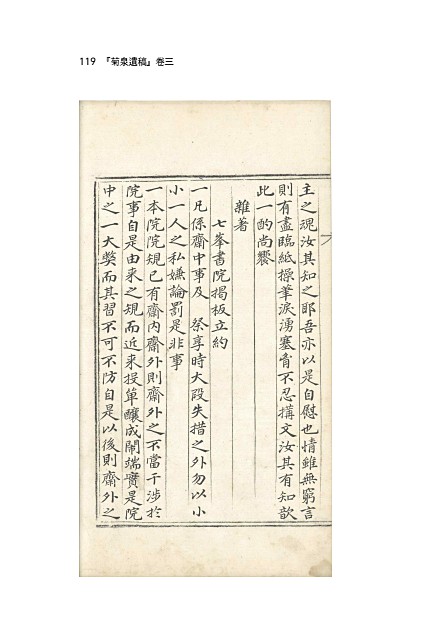 119 『菊泉遺稿』卷三
主之魂汝其知之耶吾亦以是自慰也情雖無窮言
則有盡臨紙操筆淚湧塞胷不忍搆文汝其有知歆
此一酌尚饗
雜著
七峯書院揭板立約
一凡係齋中事及 祭享時大段失措之外勿以小
小一人之私嫌論罰是非事
一本院院規已有齋內齋外則齋外之不當干涉於
院事自是由来之規而近来投單釀成鬧端實是院
中之一大獘而其習不可不防自是以後則齋外之